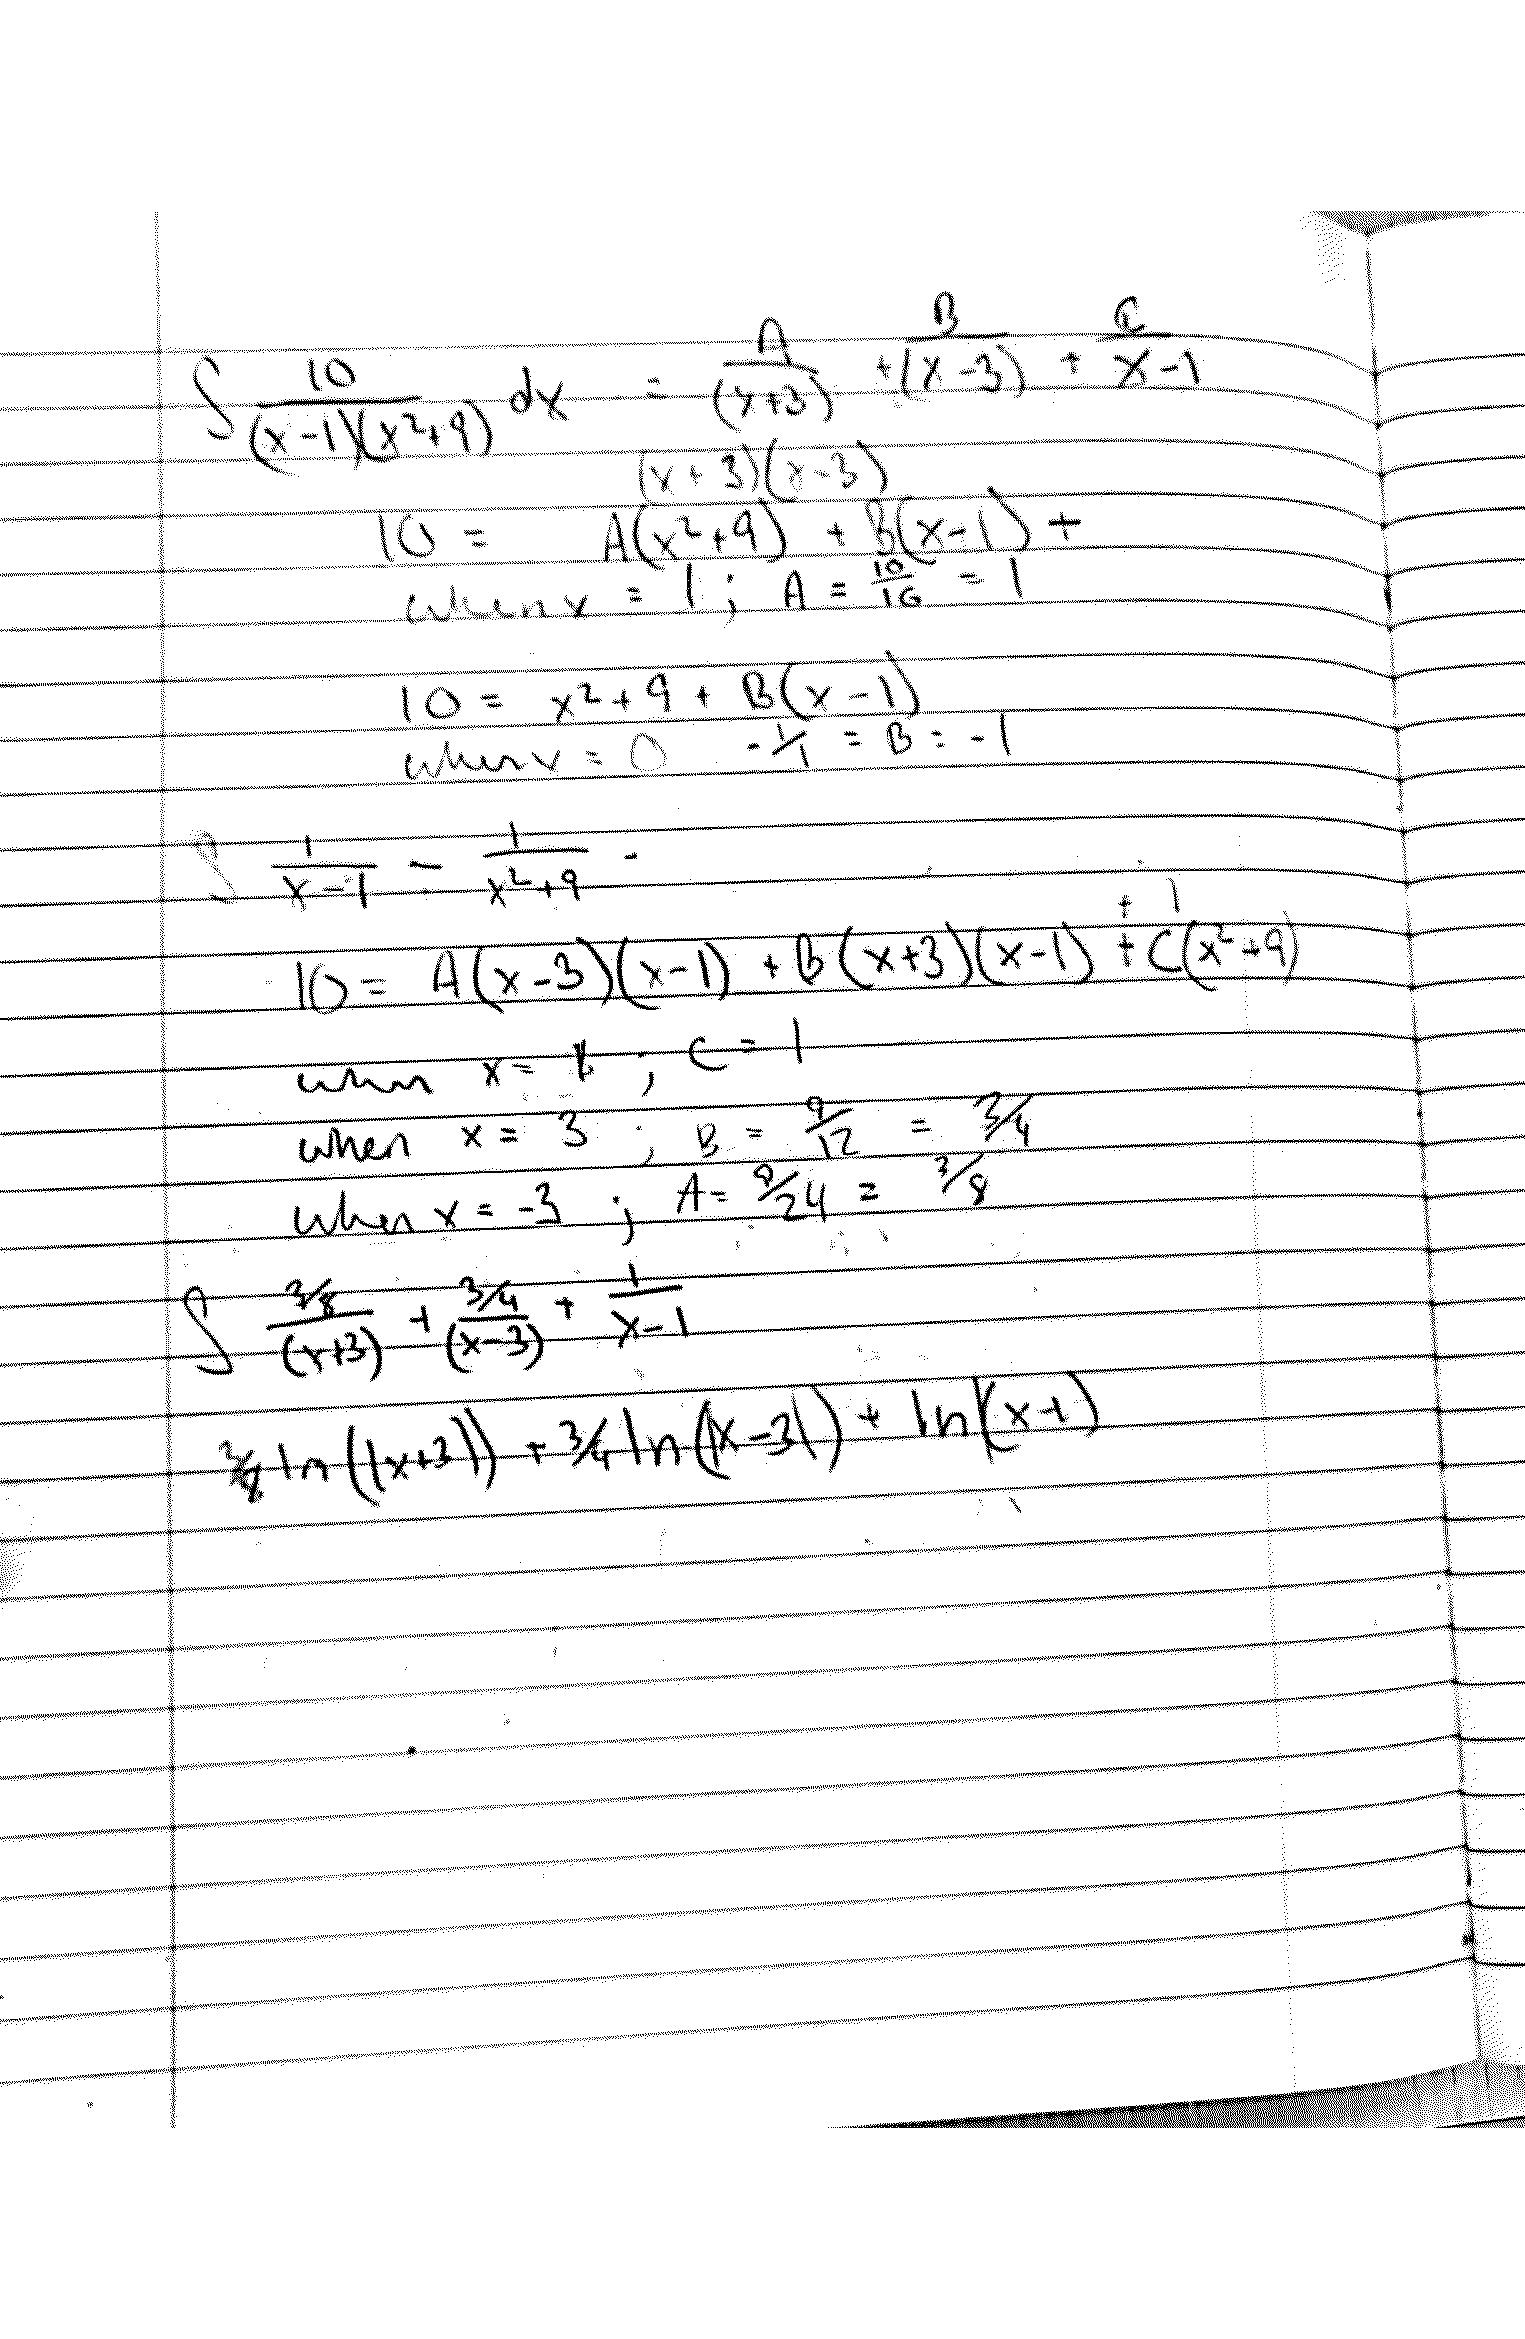 ∫ 10/((x-1)(x²+9)) dx = A/(x+3) + B/(x-3) + C/(x-1)
(x+3)(x-3)
10 = A(x²+9) + B(x-1) +
when x = 1 ; A = 10/10 = 1
10 = x²+9 + B(x-1)
when x = 0 -1/1 = B = -1
∫ 1/(x-1) - 1/(x²+9) -
+ 1
10 = A(x-3)(x-1) + B(x+3)(x-1) + C(x²+9)
when x = 1 ; C = 1
when x = 3 ; B = 9/12 = 3/4
when x = -3 ; A = 9/24 = 3/8
∫ (3/8)/(x+3) + (3/4)/(x-3) + 1/(x-1)
3/8 ln(|x+3|) + 3/4 ln(|x-3|) + ln(x-1)